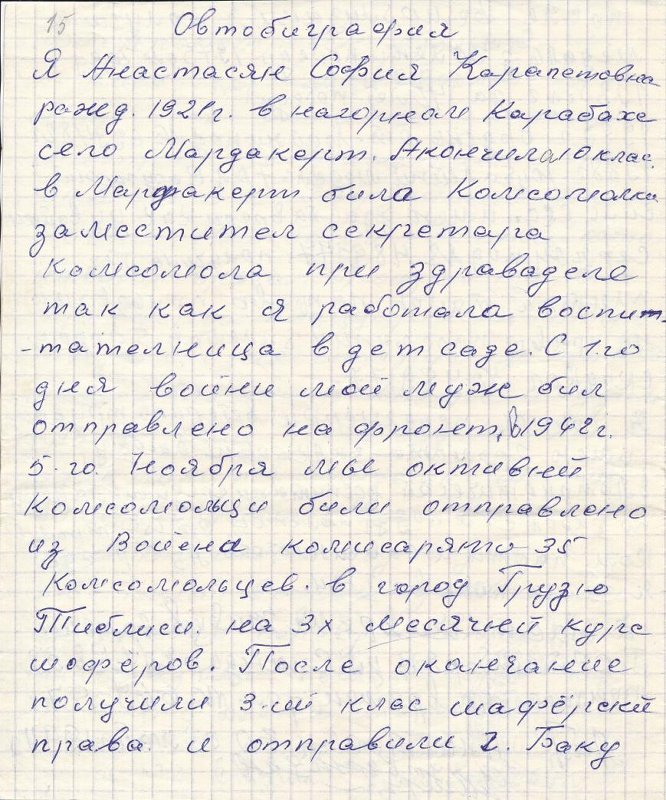 15
Овтобиграфия
Я Анастасян София Карапетовна
ражд. 1921г. в нагорном Карабахе
село Мардакерт. Акончила 10 клас.
в Мардакерт била Комсомолка
заместител секретара
комсомола при здраваделе
так как я работала воспит-
-тателница в дет саде. С 1.го
дня войни мой муж бил
отправлено на фронт, в 1942г.
5-го. Ноября мы октивней
Комсомольци били отправлено
из Воена комисарята 35
Комсомольцев. в город Грузю
Тиблиси. на 3х месячней курс
шофёров. После оканчание
получили 3-ий клас шафёрский
права. и отправили г. Баку